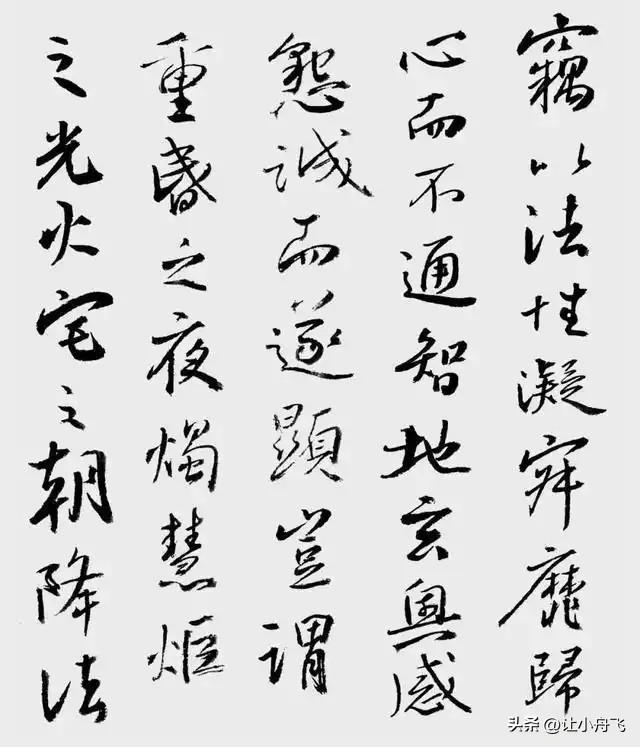 竊以法性凝寂靡歸
心而不通智地玄奧感
懇誠而遂顯豈謂
重昏之夜燭慧炬
之光火宅之朝降法
头条 @让小舟飞